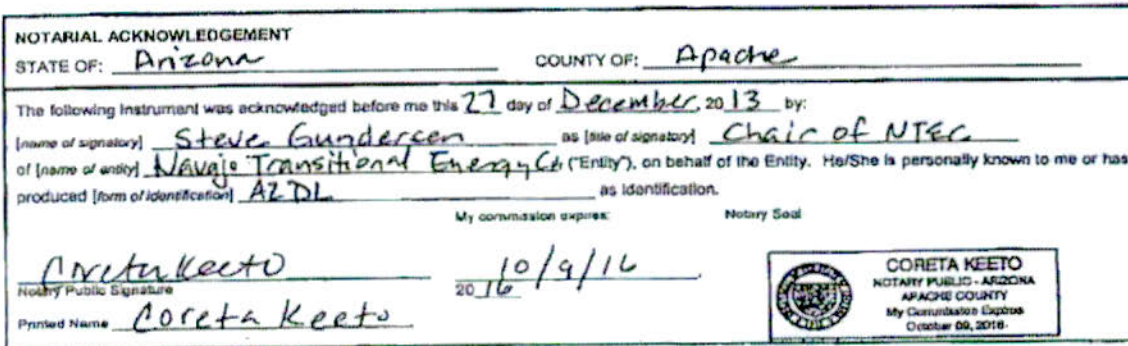 NOTARIAL ACKNOWLEDGEMENT
STATE OF: Arizona COUNTY OF: Apache
The following instrument was acknowledged before me this 27 day of December, 20 13 by:
[name of signatory] Steve Gundersen as [title of signatory] Chair of NTEC
of [name of entity] Navajo Transitional Energy Co ("Entity"), on behalf of the Entity. He/She is personally known to me or has
produced [form of identification] AZDL as identification.
My commission expires: Notary Seal
Coreta Keeto 10/9/16
Notary Public Signature 20 16
Printed Name Coreta Keeto
CORETA KEETO
NOTARY PUBLIC - ARIZONA
APACHE COUNTY
My Commission Expires
October 09, 2016